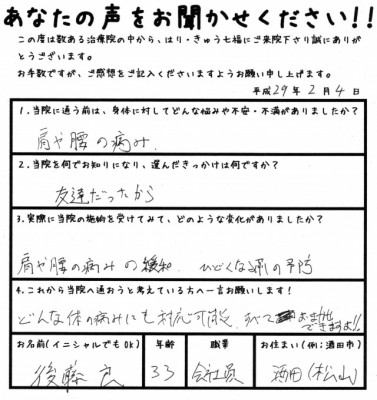 あなたの声をお聞かせください!!
この度は数ある治療院の中から、はり・きゅう七福にご来院下さり誠にありが
とうございます。
お手数ですが、ご感想をご記入くださいますようお願い申し上げます。
平成29年2月4日
1.当院に通う前は、身体に対してどんな悩みや不安・不満がありましたか?
肩や腰の痛み.
2.当院を何でお知りになり、選んだきっかけは何ですか?
友達だったから
3.実際に当院の施術を受けてみて、どのような変化がありましたか?
肩や腰の痛みの緩和 ひどくなる前の予防
4.これから当院へ通おうと考えている方へ一言お願いします!
どんな体の痛みにも対応可能、
お名前(イニシャルでもOK) 年齢 職業 お住まい(例:酒田市)
後藤 良 33 会社員 酒田(松山)